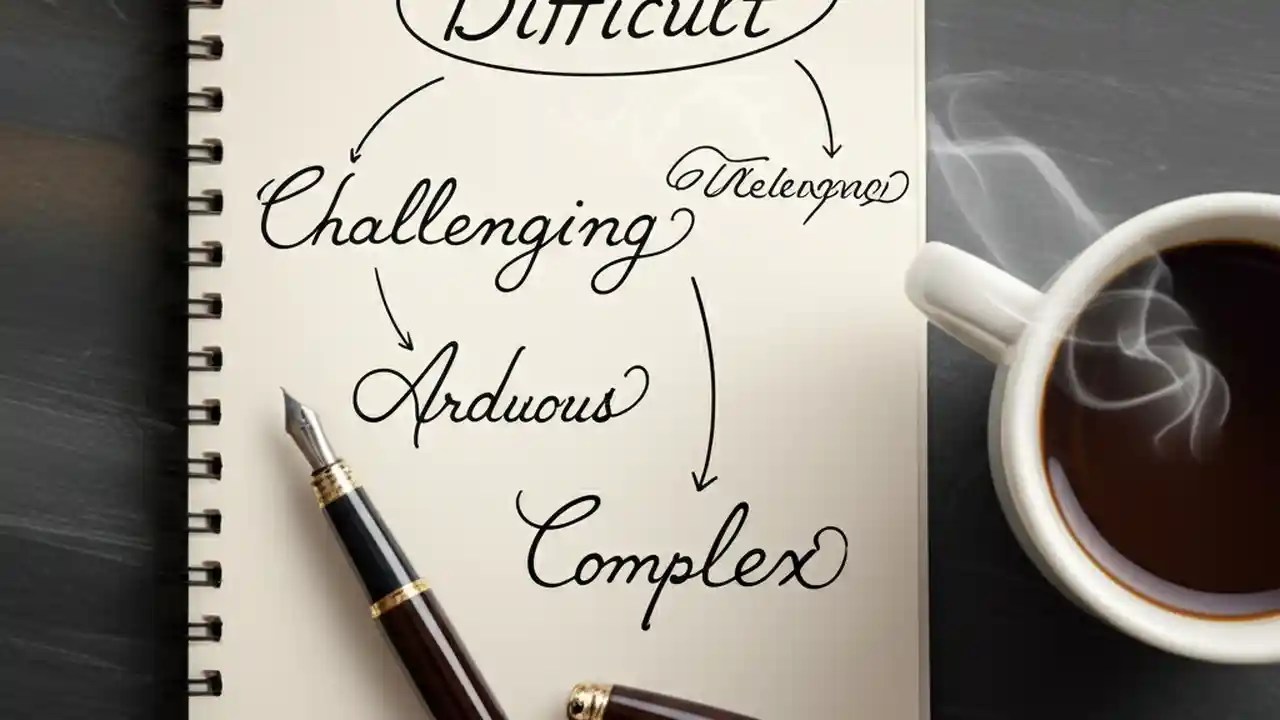 Difficult
Challenging
Arduous
Complex